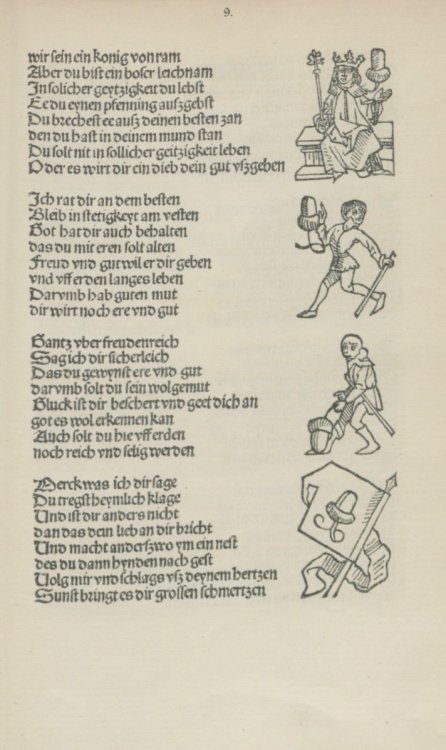 9.
wir sein ein konig von ram
Aber du bist ein boser leichnam
In solicher geytzigkeit du lebst
Ee du eynen pfenning auszgebst
Du brechest ee ausz deinen besten zan
den du hast in deinem mund stan
Du solt nit in sollicher geitzigkeit leben
Oder es wirt dir ein dieb dein gut vszgeben
Ich rat dir an dem besten
Bleib in stetigkeyt am vesten
Got hat dir auch behalten
das du mit eren solt alten
Freud vnd gut wil er dir geben
vnd vff erden langes leben
Darumb hab guten mut
dir wirt noch ere vnd gut
Gantz vber freudenreich
Sag ich dir sicherleich
Das du gewynst ere vnd gut
darumb solt du sein wolgemut
Gluck ist dir beschert vnd geet dich an
got es wol erkennen kan
Auch solt du hie vff erden
noch reich vnd selig werden
Merck was ich dir sage
Du tregst heymlich klage
Und ist dir anders nicht
dan das dein lieb an dir bricht
Und macht anderszwo ym ein nest
des du dann hynden nach gest
Volg mir vnd schlags vsz deynem hertzen
Sunst bringt es dir grossen schmertzen